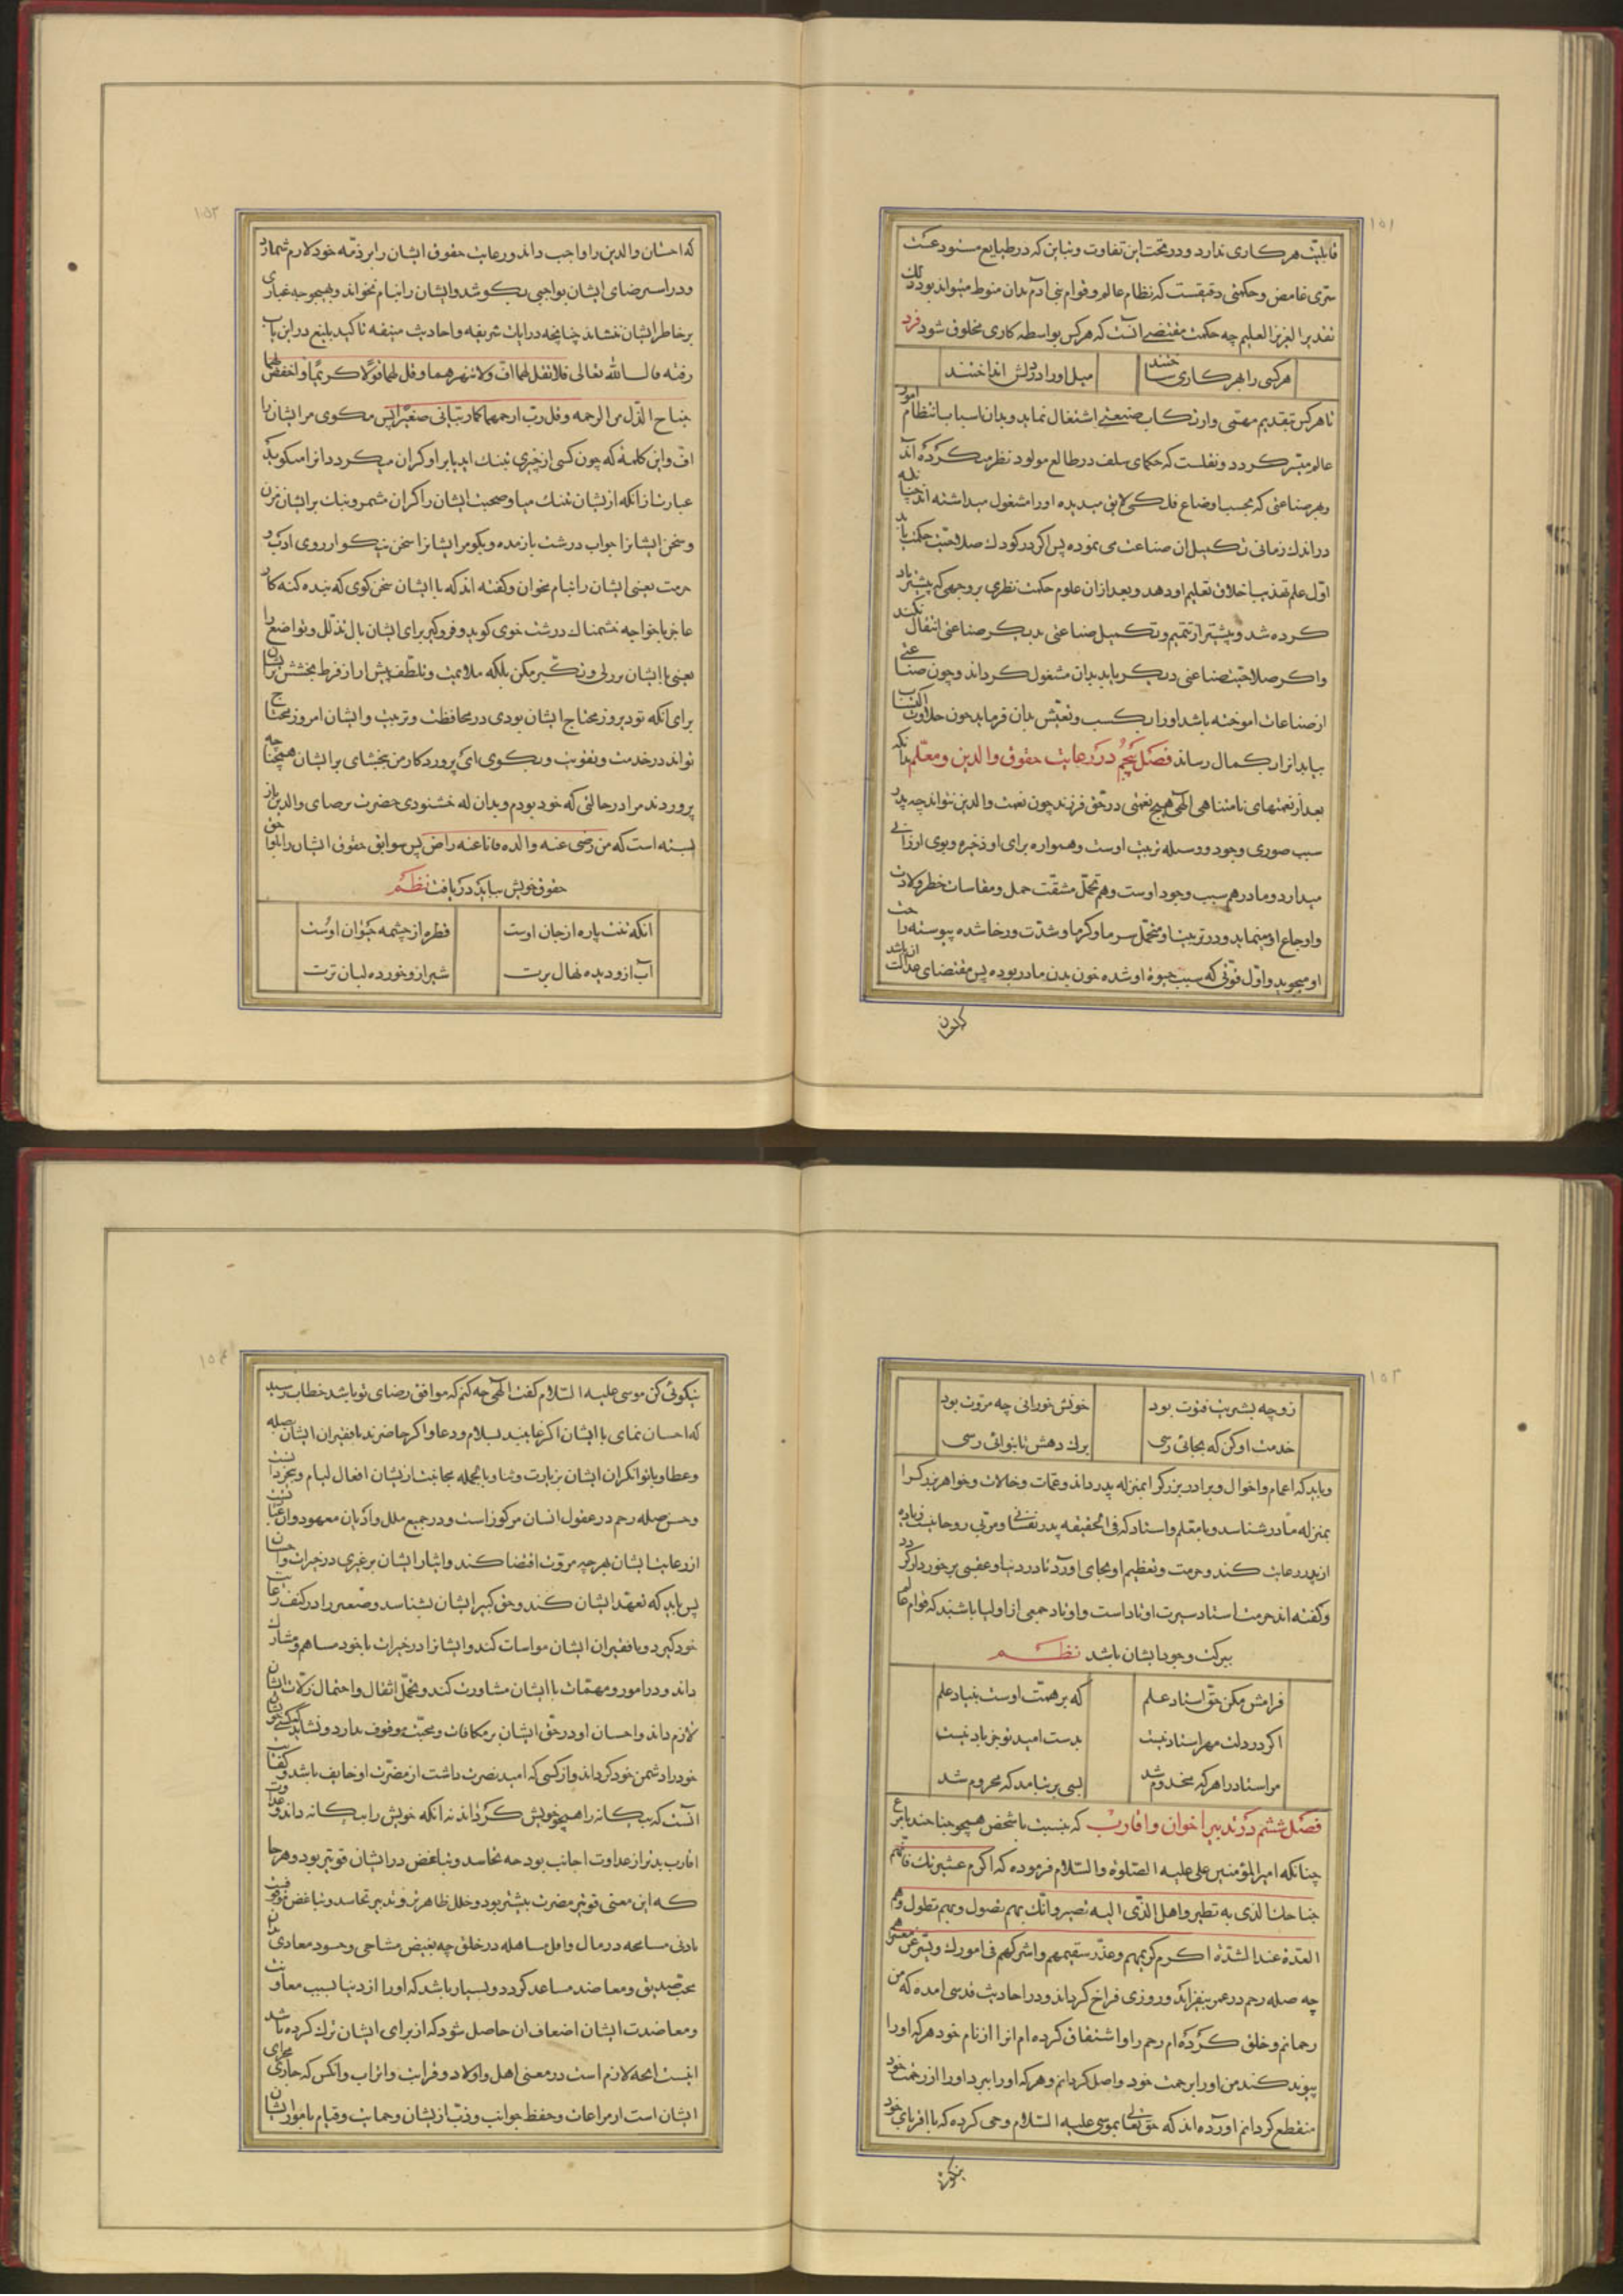 ۱۵۱
قابلیت هر کاری ندارد و در تحت این تفاوت و تباین که در طبایع مستودعست
سری غامض و حکمتی دقیقست که نظام عالم و قوام بنی آدم بدان منوط میتواند بود ذلک
تقدیر العزیز العلیم چه حکمت مقتضی آنست که هر کس بواسطه کاری مخلوق شود فرد
هر کسی را بهر کاری ساختند
میل او را در دلش انداختند
تا هر کس بتقدیم مهمی وارتکاب صنعتی اشتغال نماید و بدان اسباب انتظام امور
عالم میسر کردد و نقلست که حکمای سلف در طالع مولود نظر میکرده‌اند
و بهر صناعتی که بحسب اوضاع فلکی لایق میدیده او را مشغول میداشته اند چنانکه
در اندک زمانی تکمیل آن صناعت می نموده پس اکر در کودک صلاحیت حکمت یابد
اول علم تهذیب اخلاق تعلیم او دهد و بعد از ان علوم حکمت نظری بر وجهی که پیشتر یاد
کرده شد و پیشتر از تتمیم و تکمیل صناعتی بدیکر صناعتی انتقال نکند
و اکر صلاحیت صناعتی دیکر یابد بدان مشغول کرداند و چون صناعتی
از صناعات اموخته باشد او را بکسب و تعیش بدان فرماید چون حلاوت اکتساب
بیابد انرا بکمال رساند فصل پنجم در رعایت حقوق والدین و معلم بدانکه
بعد از نعمتهای نامتناهی الهی هیچ نعمتی در حق فرزند چون نعمت والدین نتواند چه پدر
سبب صوری وجود و وسیله تربیت اوست و همواره برای او ذخیره و بوی ارزانی
میدارد و مادر هم سبب وجود اوست و هم تحمل مشقت حمل و مقاسات خطر ولادت
و اوجاع او مینماید و در تربیت او متحمل سرما و کرما و شدت و رخا شده پیوسته راحت
او میجوید و اول قوتی که سبب حیوة او شده خون بدن مادر بوده پس مقتضای عدالت ان باشد
۱۵۲
که احسان والدین را واجب داند و رعایت حقوق ایشان را بر ذمه خود لازم شمارد
و در استرضای ایشان بواجبی بکوشد و ایشان را بنام نخواند و بهیچوجه غباری
بر خاطر ایشان ننشاند چنانچه در ایات شریفه و احادیث منیفه تاکید بلیغ در این باب
رفته قال الله تعالی فلا تقل لهما اف ولا تنهرهما و قل لهما قولا کریما و اخفض لهما
جناح الذل من الرحمه و قل رب ارحمهما کما ربیانی صغیرا پس مکوی مر ایشان را
اف و این کلمه که چون کسی از چیزی بتنک اید یا بر او کران میکردد انرا میکوید
عبارت از انکه از ایشان بتنک میا و صحبت ایشان را کران مشمر و بانک بر ایشان مزن
و سخن ایشانرا جواب درشت باز مده و بکو مر ایشانرا سخن نیکو از روی ادب و
حرمت یعنی ایشان را بنام مخوان و کفته اند که با ایشان سخن کوی که بنده کنه کار
عاجز با خواجه خشمناک درشت خوی کوید و فرو کیر برای ایشان بال تذلل و تواضع را
یعنی با ایشان بزرکی و تکبر مکن بلکه ملایمت و تلطف پیش ار از فرط بخشش بر ایشان
برای انکه تو دیروز محتاج ایشان بودی در محافظت و تربیت و ایشان امروز محتاج
تواند در خدمت و تقویت و بکوی ای پروردکار من ببخشای بر ایشان همچنانچه
پروردند مرا در حالتی که خود بودم و بدان که خشنودی حضرت برضای والدین باز
بسته است که من رضی عنه والده فانا عنه راض پس سوابق حقوق ایشان را بلواحق
حقوق خویش بباید دریافت نظم
انکه تنت پاره از جان اوست
قطره از چشمه حیوان اوست
آب ازو دیده نهال برت
شیر ازو خورده لبان ترت
۱۵۳
زو چه بشیریت فتوت بود
خونش خورانی چه مروت بود
خدمت او کن که بجائی رسی
برک دهش تا بنوائی رسی
و باید که اعمام و اخوال و برادر بزرکرا بمنزله پدر داند و عمات و خالات و خواهر بزرکرا
بمنزله مادر شناسد و با معلم و استاد که فی الحقیقه پدر نفسانی و مربی روحانیست زیاده
از پدر رعایت کند و حرمت و تعظیم او بجای اورد تا در دنیا و عقبی برخوردار کردد
و کفته اند حرمت استاد سیرت اوتاد است و اوتاد جمعی از اولیا باشند که قوام عالم
ببرکت وجود ایشان باشد نظم
فرامش مکن حق استاد علم
که بر همت اوست بنیاد علم
اکر در دلت مهر استاد نیست
بدست امید تو جز باد نیست
مر استاد را هر که مخدوم شد
بسی بر نیامد که محروم شد
فصل ششم در تدبیر اخوان و اقارب که نسبت با شخص همچو جناحند با مرغ
چنانکه امیر المؤمنین علی علیه الصلوة و السلام فرموده که اکرم عشیرتک فانهم
جناحک الذی به تطیر و اهل الذی الیه تصیر و انک بهم تصول و بهم تطول وهم
العدة عند الشدة اکرم کریمهم و عد سقیمهم و اشرکهم فی امورک و یسر عن معسرهم
چه صله رحم در عمر بیفزاید و روزی فراخ کرداند و در احادیث قدسی امده که من
رحمانم و خلق کرده‌ام رحم را و اشتقاق کرده ام انرا از نام خود هر که او را
پیوند کند من او را برحمت خود واصل کردانم و هر که او را ببرد او را از رحمت خود
منقطع کردانم اورده اند که حق تعالی بموسی علیه السلام وحی کرده که با اقربای خود
۱۵۴
نیکوئی کن موسی علیه السلام کفت الهی چه کنم که موافق رضای تو باشد خطاب رسید
که احسان نمای با ایشان اکر غایبند بسلام و دعا و اکر حاضرند با فقیران ایشان بصله
و عطا و با توانکران ایشان بزیارت و ثنا و بالجمله مجانبت از ایشان افعال لیام و بخردانست
و حسن صله رحم در عقول انسان مرکوز است و در جمیع ملل و ادیان معهود و ان عبارتست
از رعایت ایشان بهر چه مروت اقتضا کند و ایثار ایشان بر غیری در خیرات و احسان
پس باید که تعهد ایشان کند و حق کبیر ایشان بشناسد و صغیر را در کنف رعایت
خود کیرد و با فقیران ایشان مواسات کند و ایشانرا در خیرات با خود مساهم و مشارک
داند و در امور و مهمات با ایشان مشاورت کند و تحمل اثقال و احتمال زلات ایشان
لازم داند و احسان او در حق ایشان بر مکافات و محبت موقوف ندارد و نشاید که کسی خویش
خود را دشمن خود کرداند و از کسی که امید نصرت داشت از مضرت او خایف باشد و کفتا
آنست که بیکانه را همچو خویش کرداند نه انکه خویش را بیکانه داند و عداوت
اقارب بدتر از عداوت اجانب بود چه تحاسد و تباغض در ایشان قویتر بود و هر جا
که این معنی قویتر مضرت بیشتر بود و خلل ظاهرتر و تدبیر تحاسد و تباغض
بادنی مسامحه در مال و اقل مساهله در خلق چه بغیض مشاحی و حسود معادی
محب صدیق و معاضد مساعد کردد و بسیار باشد که او را از دنیا بسبب معاونت
و معاضدت ایشان اضعاف ان حاصل شود که از برای ایشان ترک کرده باشد
اینست انچه لازم است در معنی اهل و اولاد و قرابت و اتراب و انکس که جاری مجرای
ایشان است از مراعات و حفظ جوانب و ذب از ایشان و حمایت و قیام بامور ایشان